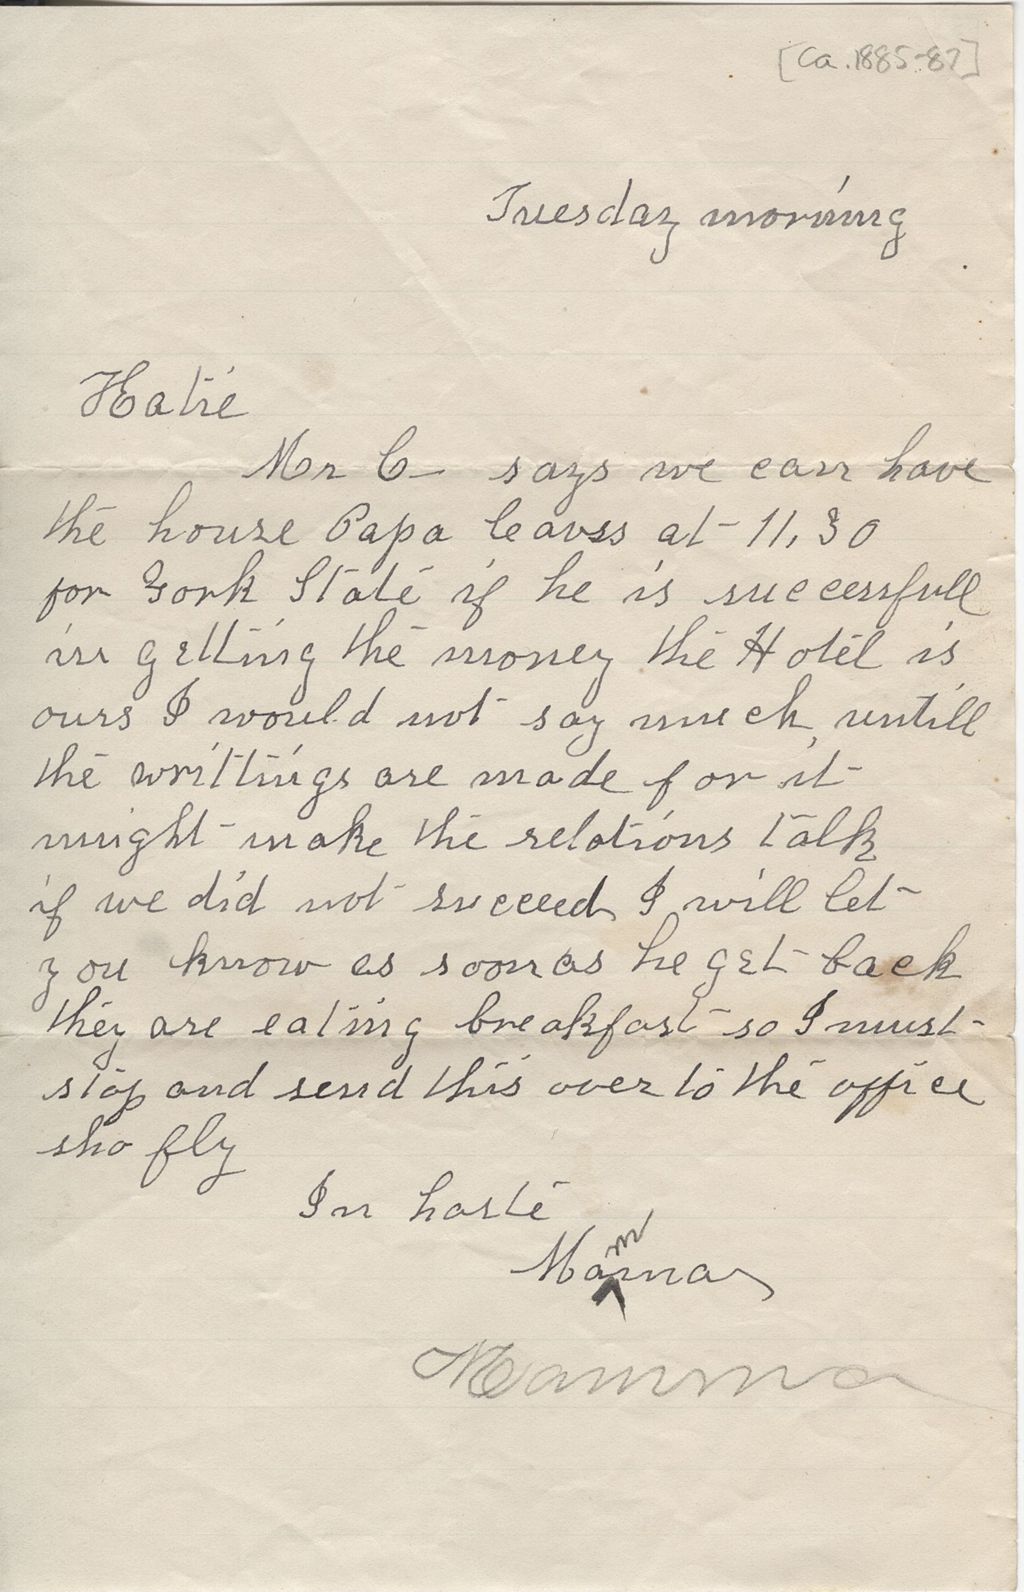 [Ca. 1885-87]
Tuesday morning
Hatie
Mr C— says we can have
the house Papa leavss at 11,30
for York State if he is successfull
in getting the money the Hotel is
ours I would not say much, untill
the writtings are made for it
might make the relations talk
if we did not succeed, I will let
you know as soon as he get back
they are eating breakfast so I must
stop and send this over to the office
sho fly
In haste
m
Mama
Mamma